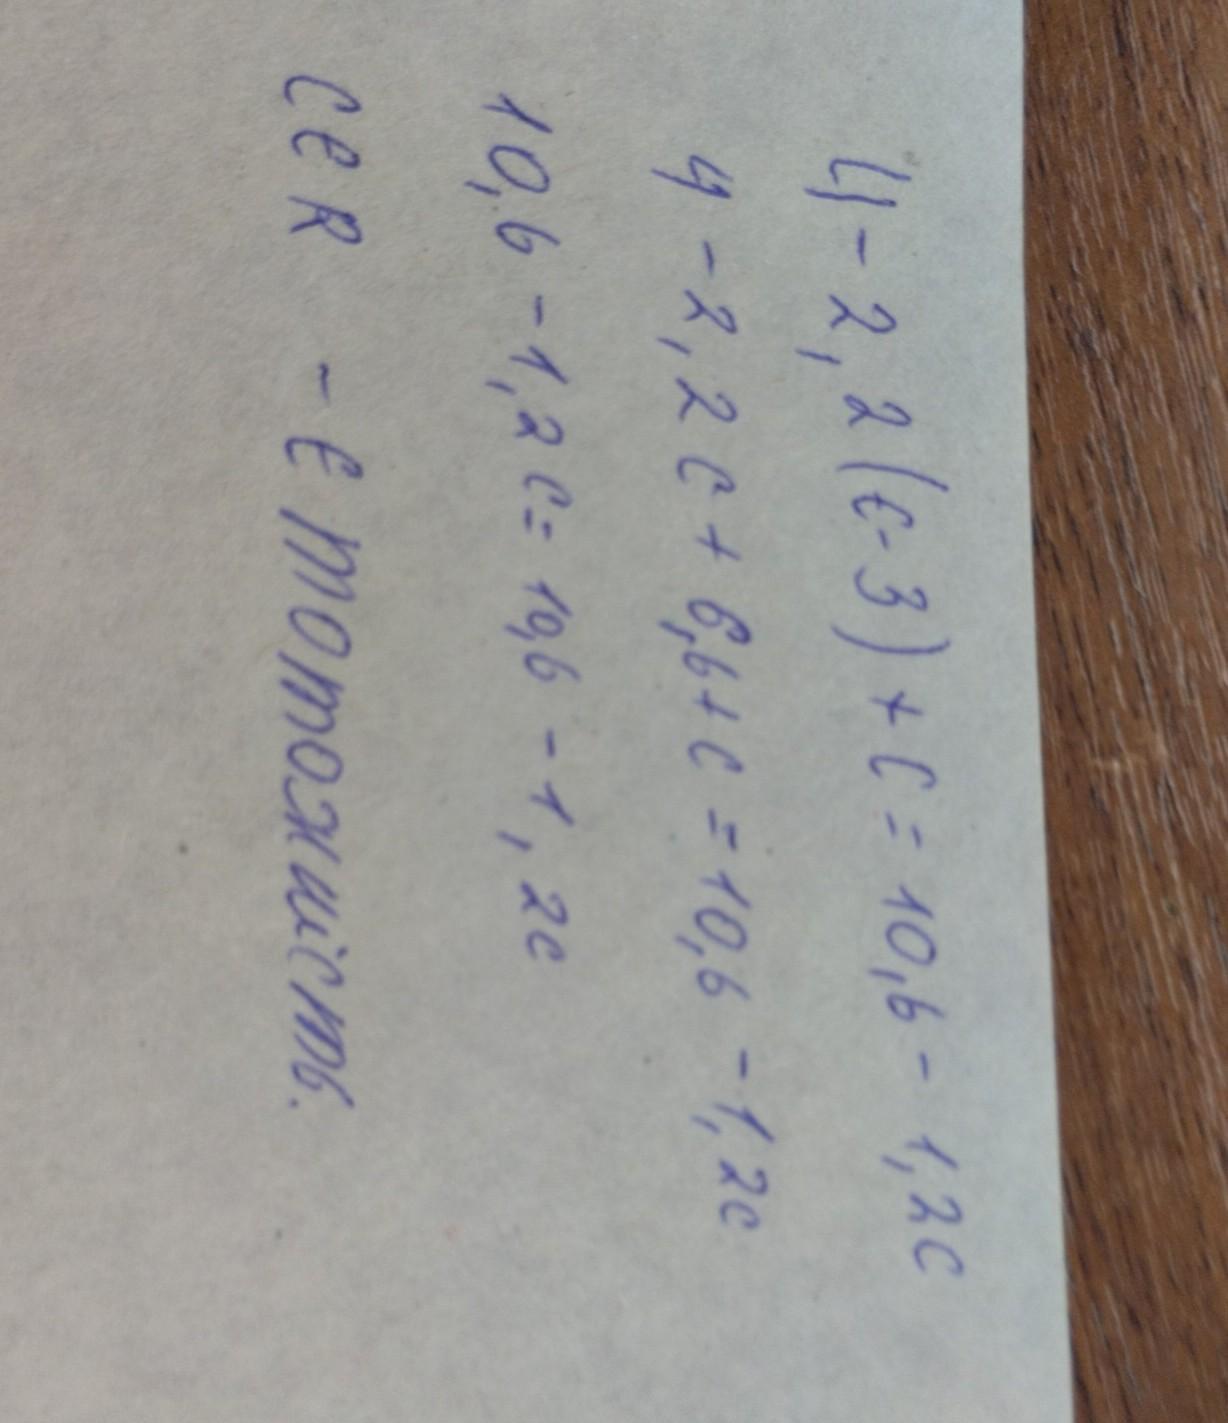 4 - 2,2(c-3) + c = 10,6 - 1,2c
4 - 2,2c + 6,6 + c = 10,6 - 1,2c
10,6 - 1,2c = 10,6 - 1,2c
c є R - є тотожність.